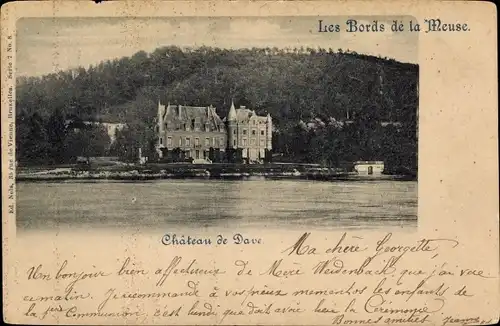 Les Bords de la Meuse.
Ed. Nels, Rue de Vienne, Bruxelles. Serie 7 No. 8
Château de Dave.
Ma chère Georgette
Un bonjour bien affectueux de Mère Weidenbach que j'ai vue
ce matin. Je recommande à vos pieux mementos les enfants de
la 1ère Communion, c'est lundi que doit avoir lieu la Cérémonie.
Bonnes amitiés